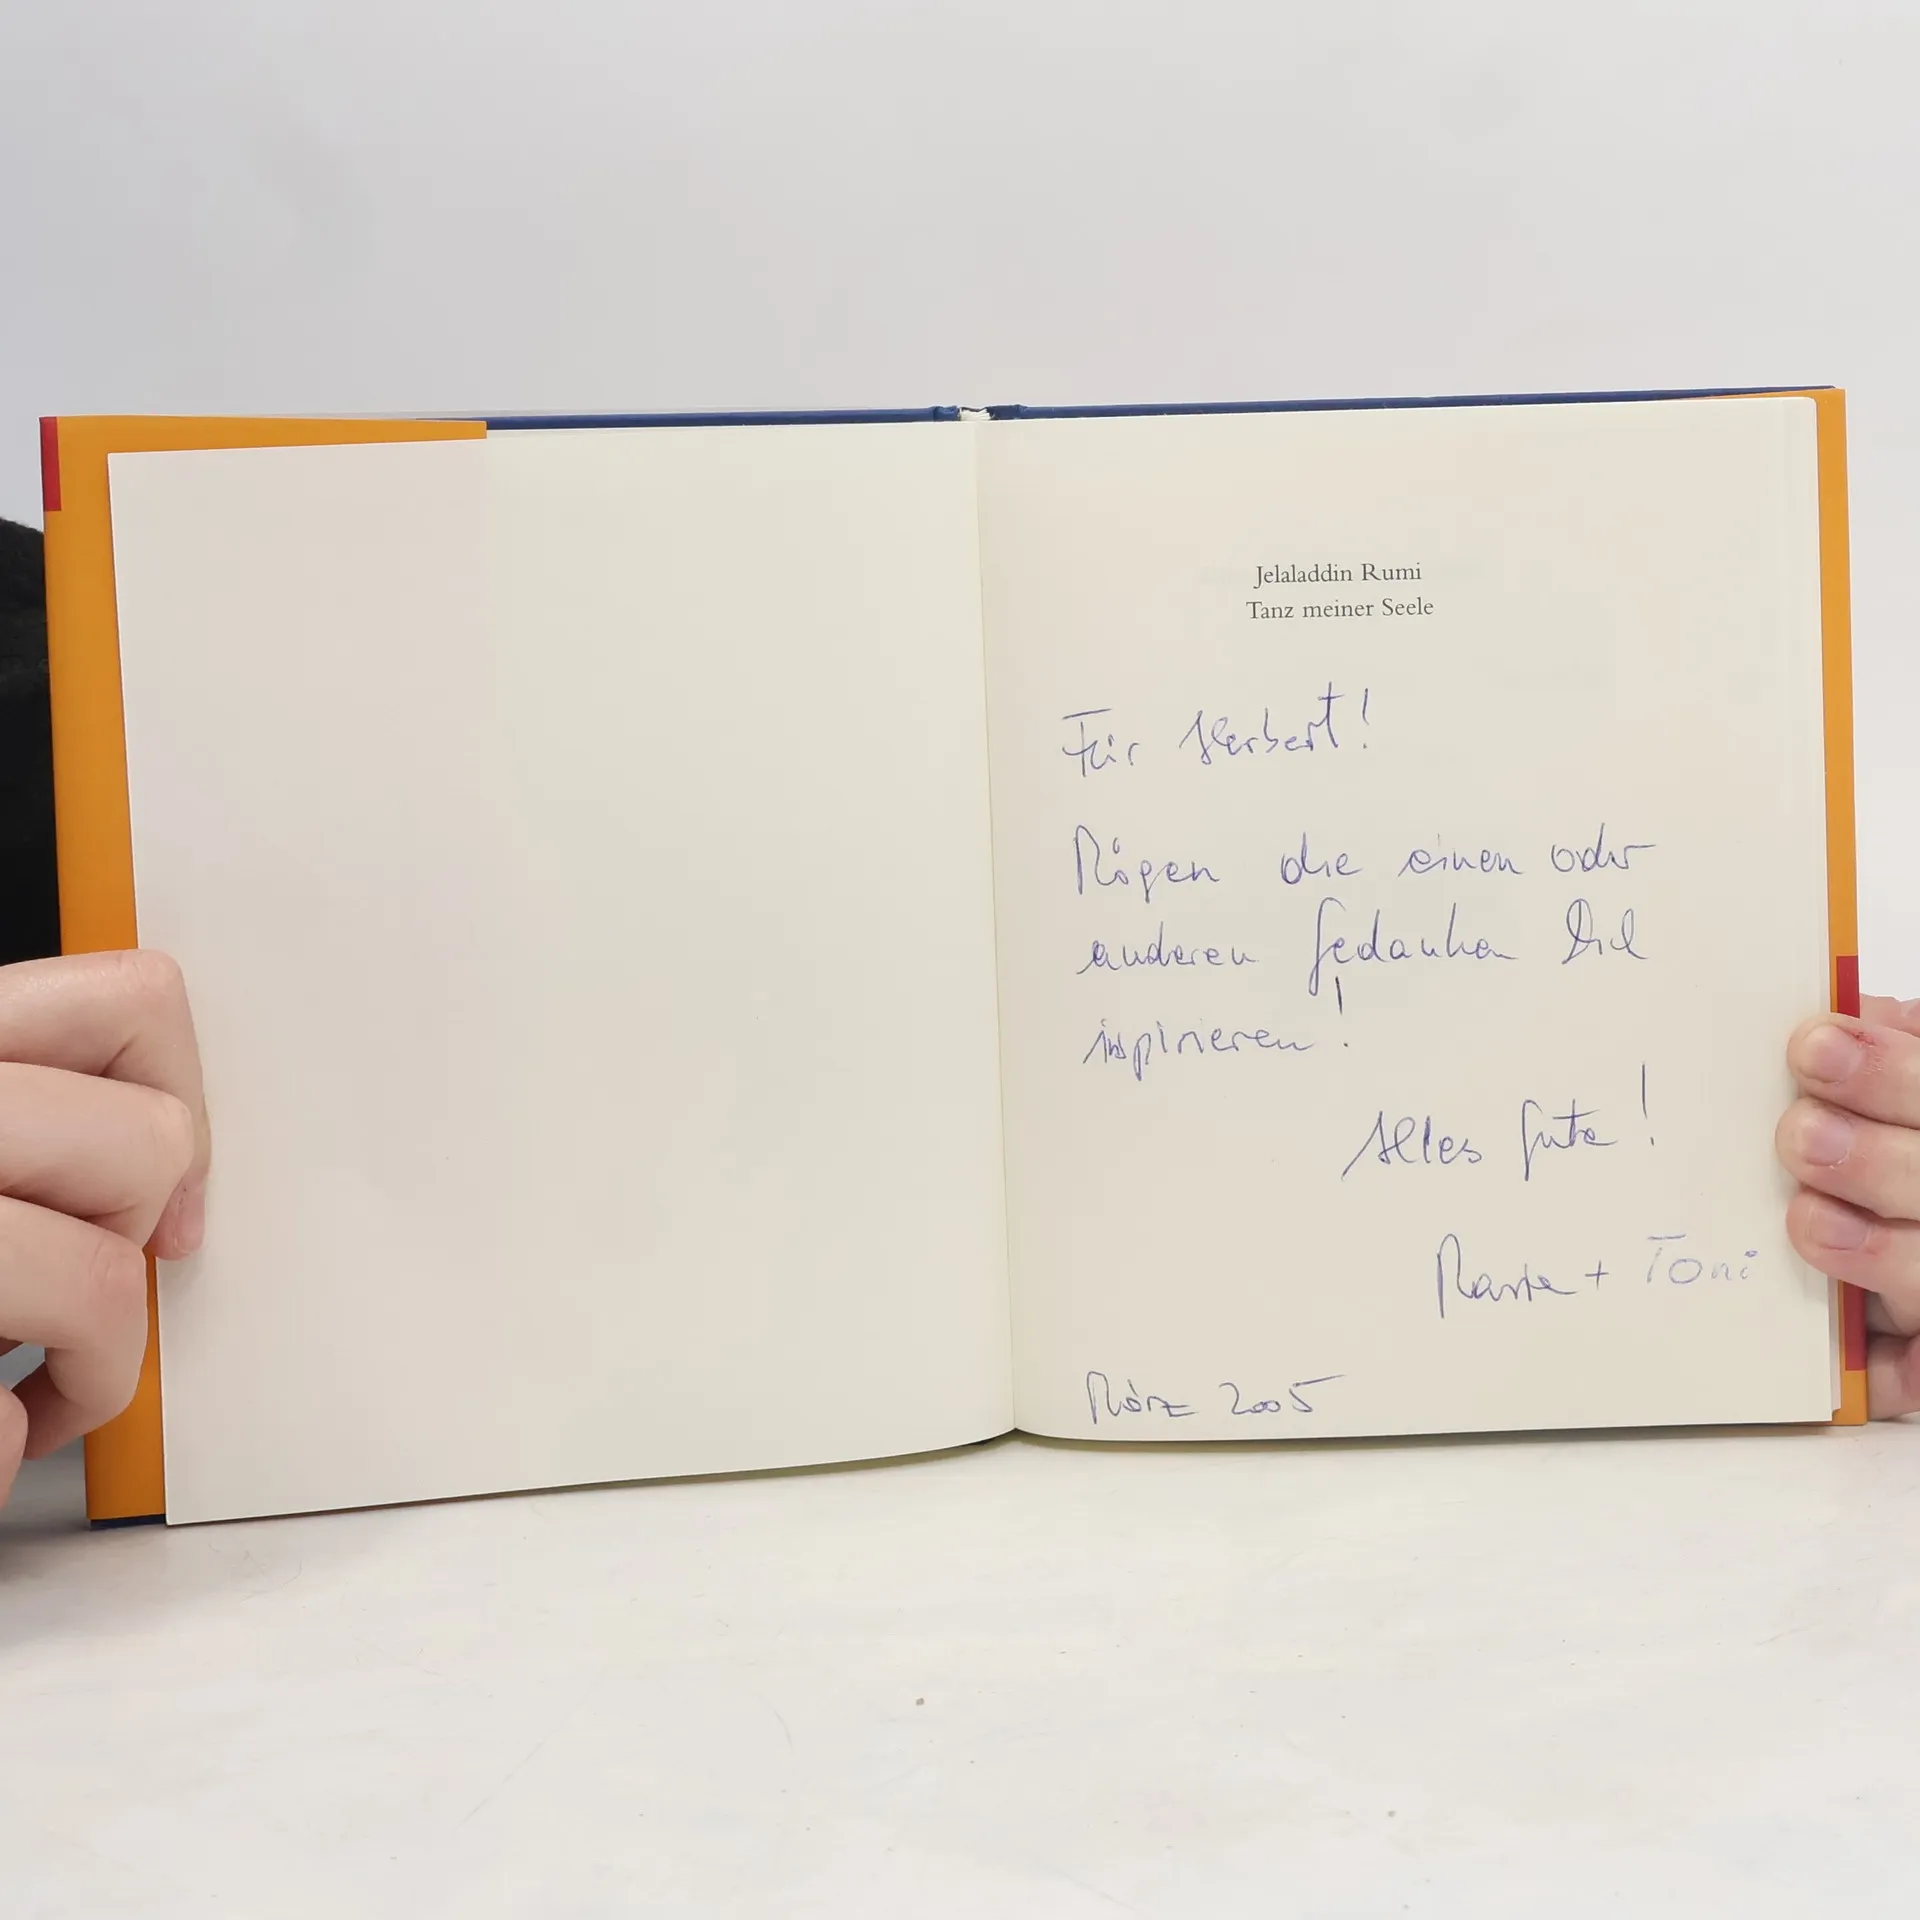 Jelaladdin Rumi
Tanz meiner Seele
Für Herbert!
Mögen die einen oder
anderen Gedanken Dich
inspirieren!
Alles Gute!
Maria + Toni
März 2005